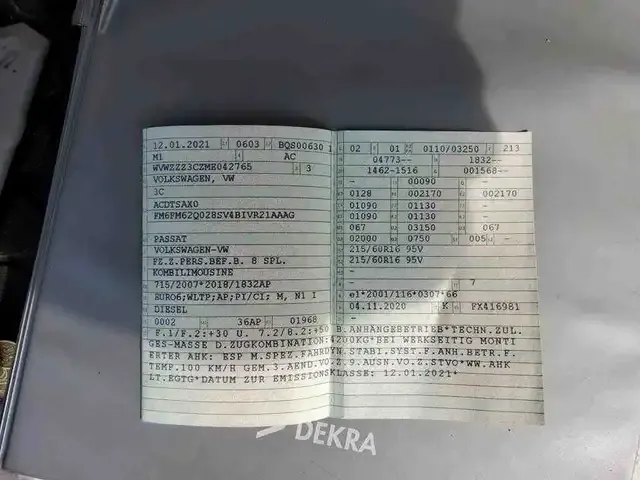 12.01.2021 0603 BQS00630 1
M1 AC
WVWZZZ3CZME042765 3
VOLKSWAGEN, VW
3C
ACDTSAX0
FM6FM62Q028SV4BIVR21AAAG
PASSAT
VOLKSWAGEN-VW
FZ.Z.PERS.BEF.B. 8 SPL.
KOMBILIMOUSINE
715/2007*2018/1832AP
EURO6;WLTP;AP;PI/CI; M, N1 I
DIESEL
0002 36AP 01968
02 01 0110/03250 213
04773-- 1832--
1462-1516 001568--
- 00090 -
0128 002170 002170
01090 01130
01090 01130
067 03150 067
02000 0750 005 -
215/60R16 95V
215/60R16 95V
-
- 7
e1*2001/116*0307*66
04.11.2020 K FX416981
-
F.1/F.2:+30 U. 7.2/8.2:+50 B.ANHANGEBETRIEB*TECHN.ZUL.
GES-MASSE D.ZUGKOMBINATION:4200KG*BEI WERKSEITIG MONTI
ERTER AHK: ESP M.SPEZ.FAHRDYN.STABI.SYST.F.ANH.BETR.F.
TEMP.100 KM/H GEM.3.AEND.VO.Z.9.AUSN.VO.Z.STVO*WW.AHK
LT.EGTG*DATUM ZUR EMISSIONSKLASSE: 12.01.2021*
DEKRA